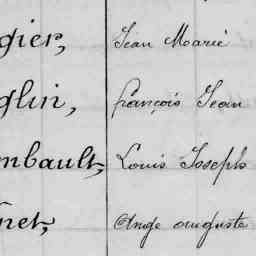 gier, Jean Marie
glin, françois Jean
mbault, Louis Joseph
net, Ange auguste